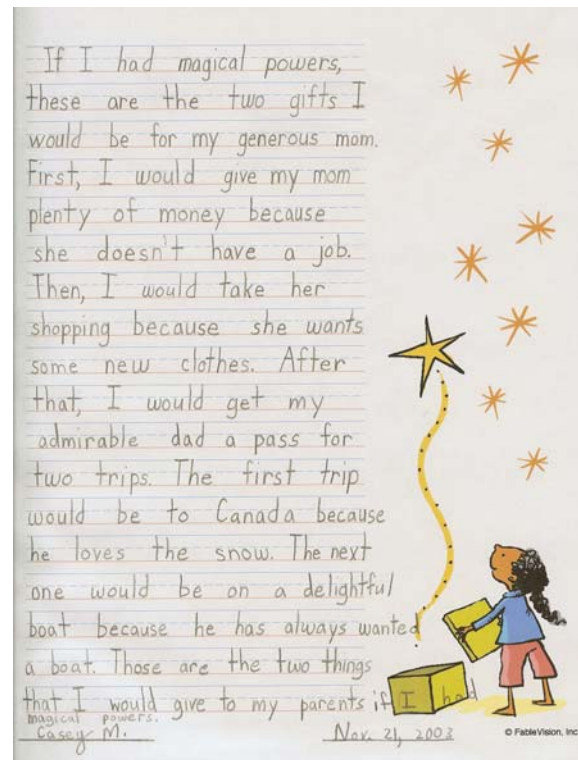 If I had magical powers,
these are the two gifts I
would be for my generous mom.
First, I would give my mom
plenty of money because
she doesn't have a job.
Then, I would take her
shopping because she wants
some new clothes. After
that, I would get my
admirable dad a pass for
two trips. The first trip
would be to Canada because
he loves the snow. The next
one would be on a delightful
boat because he has always wanted
a boat. Those are the two things
that I would give to my parents if I had
magical powers.
Casey M. Nov. 21, 2003
© FableVision, Inc